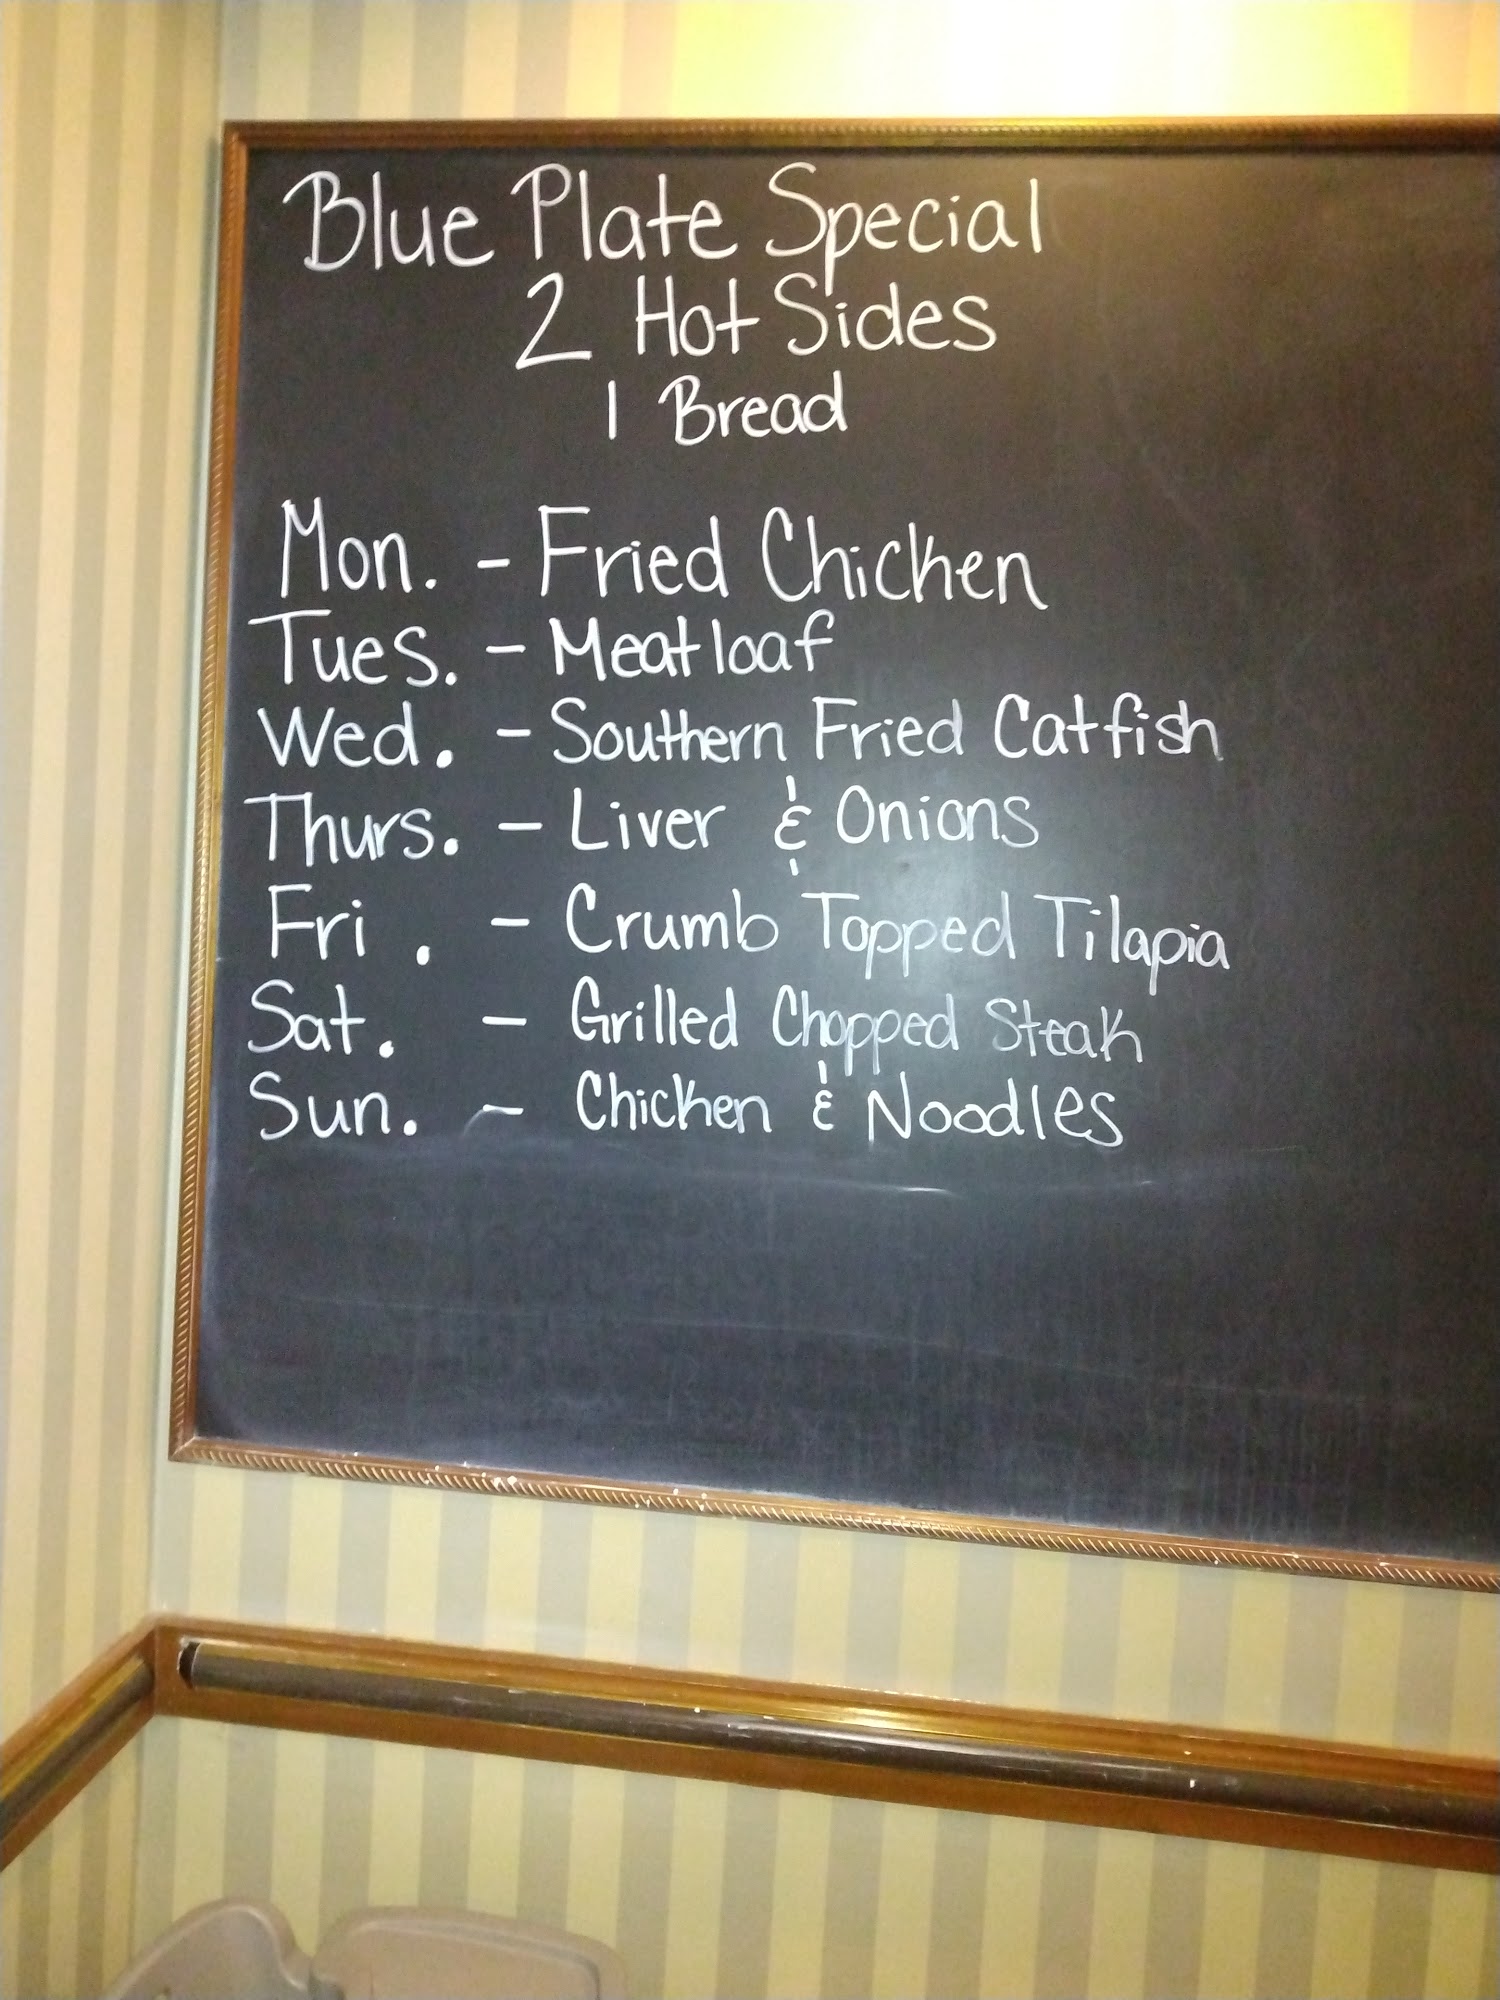 Blue Plate Special
2 Hot Sides
1 Bread
Mon. - Fried Chicken
Tues. - Meatloaf
Wed. - Southern Fried Catfish
Thurs. - Liver & Onions
Fri. - Crumb Topped Tilapia
Sat. - Grilled Chopped Steak
Sun. - Chicken & Noodles